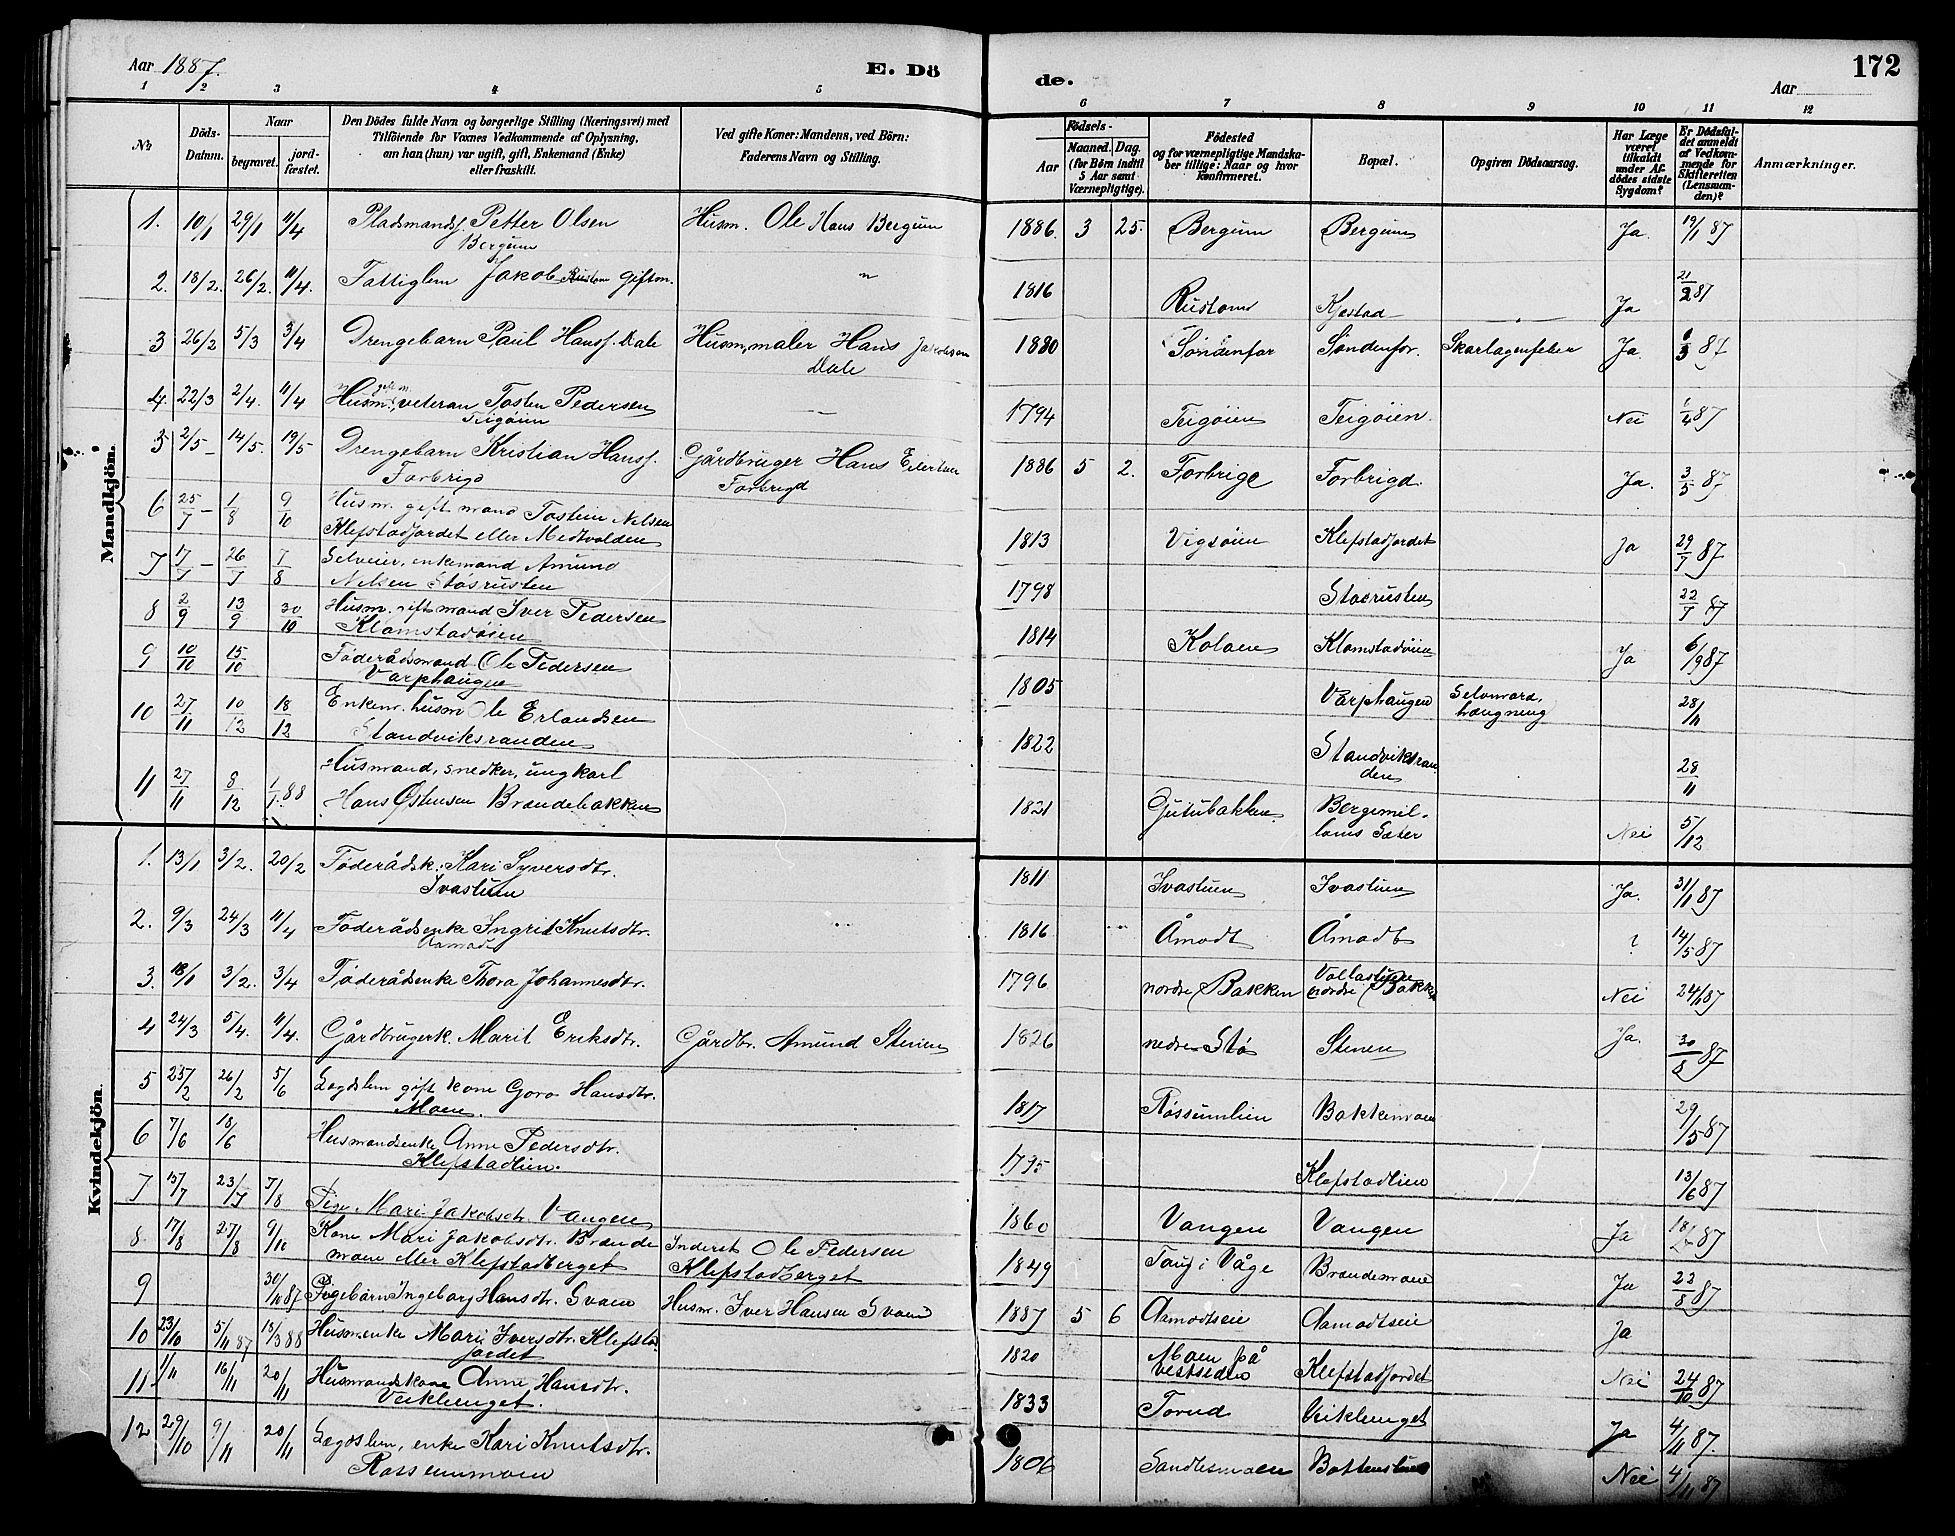 Aar 1887.
E. Dö
de.
Aar
172
1 2 3 4 5 6 7 8 9 10 11 12
No
Döds-Datum.
Naar
begravet.
jord-fæstet.
Den Dödes fulde Navn og borgerlige Stilling (Næringsvei) med
Tilföiende for Voxnes Vedkommende af Oplysning,
om han (hun) var ugift, gift, Enkemand (Enke)
eller fraskilt.
Ved gifte Koner: Mandens, ved Börn:
Faderens Navn og Stilling.
Födsels-
Aar
Maaned. Dag.
(for Börn indtil
5 Aar samt
Værnepligtige).
Födested
og for værnepligtige Mandska-
ber tillige: Naar og hvor
konfirmeret.
Bopæl.
Opgiven Dödsaarsag.
Har Læge
været
tilkaldt
under Af-
dödes sidste
Sygdom?
Er Dödsfal-
det anmeldt
af Vedkom-
mende for
Skifteretten
(Lensman-
den)?
Anmærkninger.
Mandkjön.
1. 10/1 29/1 11/4 Pladsmands. Petter Olsen Bergum Husm. Ole Hans Bergum 1886. 3 25. Bergum Bergum Ja. 19/1 87
2. 18/2. 26/2. 11/4. Fattiglem Jakob Rustom giftm. " 1816 Rustom Kjestad Ja 21/2 87
3 26/2 5/3 3/4 Drengebarn Paul Hanss. Dale Husm, maler Hans Jakobsen Dale 1880 Söndenfor Söndenfor. Skarlagensfeber Ja. 87
4. 22/3 2/4. 11/4 Husm. gift m. veteran Tosten Pedersen Teigöien 1794 Teigöien Teigöien. Nei 1/4 87
5 2/5 14/5. 19/5 Drengebarn Kristian Hanss. Forbrigd Gårdbruger Hans Forbrigd 1886 5 2. Forbrige Forbrigd. Ja. 3/5 87
6 25/7 1/8 9/10 Husm. gift mand Tostein Nilsen Klefstadjordet eller Medtvolden 1813 Vigsöien Klefstadjordet Ja 29/7 87
7 17/7 26/7 7/8 Selveier, enkemand Amund Nelsen Stösrusten 1798 Stösrusten 22/7 87
8 2/9 13/9 30/10 Husm. gift mand Iver Pedersen Klomstadöien 1814 Koloen Klomstadöien Ja 6/9 87
9 10/10 15/10 Föderådsmand Ole Pedersen Varphaugen 1805 Varphaugen Selvmord, hængning 28/11
10 27/11 10/12 18/12 Enkem. husm Ole Erlandsen Standviksranden 1822 Standviksranden 28/11
11 27/11 8/12 1/1 88 Husmand, snedker, ungkarl Hans Östensen Brændebakken 1821 Gutubakken Nei 5/12
Kvindekjön.
1. 13/1 3/2. 20/2 Föderådsk. Kari Syversdtr. Ivastuen 1811 Ivastuen Ivastuen Ja. 31/1 87
2. 9/3 24/3 11/4 Föderådsenke Ingrid Knutsdtr. Aamodt 1816 Åmodt Åmodt ? 14/5 87
3. 18/1 3/2. 3/4 Föderådsenke Thora Johannesdtr. 1796 nordre Bakken nordre Bakken Nei 24/1 87
4 24/3 5/4. 11/4. Gårdbrugerk. Marit Eriksdtr. Gårdbr. Amund Stenen 1826 nedre Stö Stenen Ja. 87
5 23/2 26/2 5/6 Lægdslem gift kone Goro Hansdtr. Moen. 1817 Røssumlien Bakkemoen 29/5 87
6 7/6 18/6 Husmandsenke Anne Pedersdtr. Klefstadlien. 1795 Klefstadlien 13/6 87
7 15/7 23/7 7/8 Pige Mari Jakobsdtr. Vangen 1860 Vangen Vangen Ja 87
8. 17/8 27/8 9/10 Kone Mari Jakobsdtr. Brændemoen eller Klefstadberget Inderst Ole Pedersen Klefstadberget 1849 i Våge Brændemoen Ja 22/8 87
9 30/11 87 Pigebarn Ingeborg Hansdtr. Svaen Husm. Iver Hansen Svaen 1887 5 6 Aamodtseie Aamodtseie Ja
10 23/10 5/11 87 18/3 88 Husm.enke Mari Iversdtr. Klefstadjordet 1820 Moen på Vestsiden Klefstadjordet Nei 24/10 87
11 1/11 16/11 20/11 Husmandskone Anne Hansdtr. Veiklenget. 1833 Torud Veiklenget Ja 4/11 87.
12 29/10 9/11 20/11 Lægdslem, enke Kari Knutsdtr. Rossemmoen 1806 Sandlesmoen Nei 4/11 87